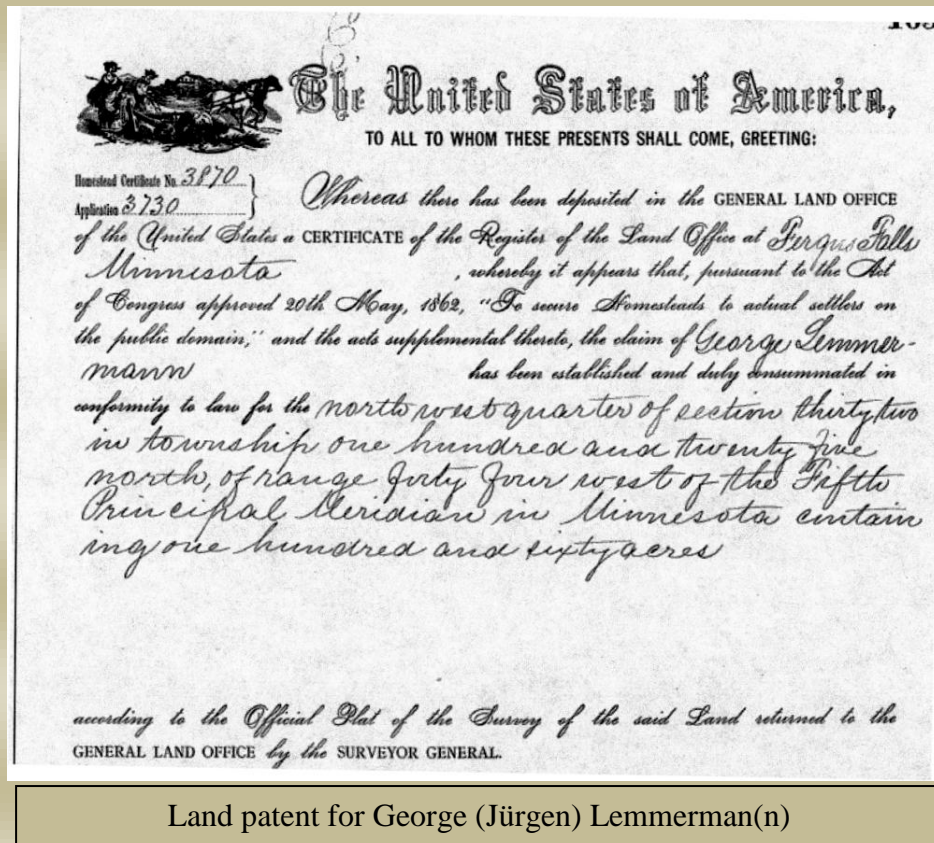 The United States of America,
TO ALL TO WHOM THESE PRESENTS SHALL COME, GREETING:
Homestead Certificate No. 3870
Application 3730
Whereas there has been deposited in the GENERAL LAND OFFICE
of the United States a CERTIFICATE of the Register of the Land Office at Fergus Falls
Minnesota , whereby it appears that, pursuant to the Act
of Congress approved 20th May, 1862, "To secure Homesteads to actual settlers on
the public domain," and the acts supplemental thereto, the claim of George Lemmer-
mann has been established and duly consummated in
conformity to law for the north west quarter of section thirty two
in township one hundred and twenty five
north, of range forty four west of the Fifth
Principal Meridian in Minnesota contain
ing one hundred and sixty acres
according to the Official Plat of the Survey of the said Land returned to the
GENERAL LAND OFFICE by the SURVEYOR GENERAL.
Land patent for George (Jürgen) Lemmerman(n)